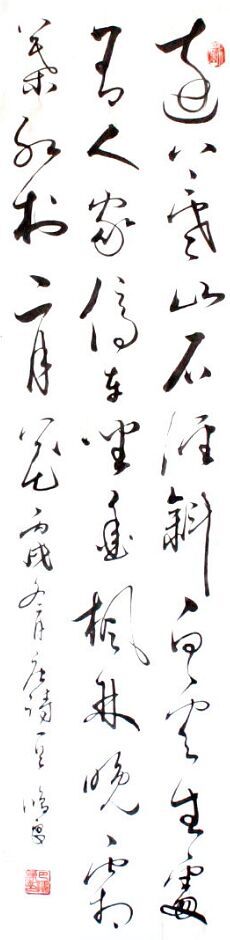 遠上寒山石徑斜白雲生處
有人家停车坐愛楓林晚霜
葉紅於二月花丙戌冬月唐詩一首